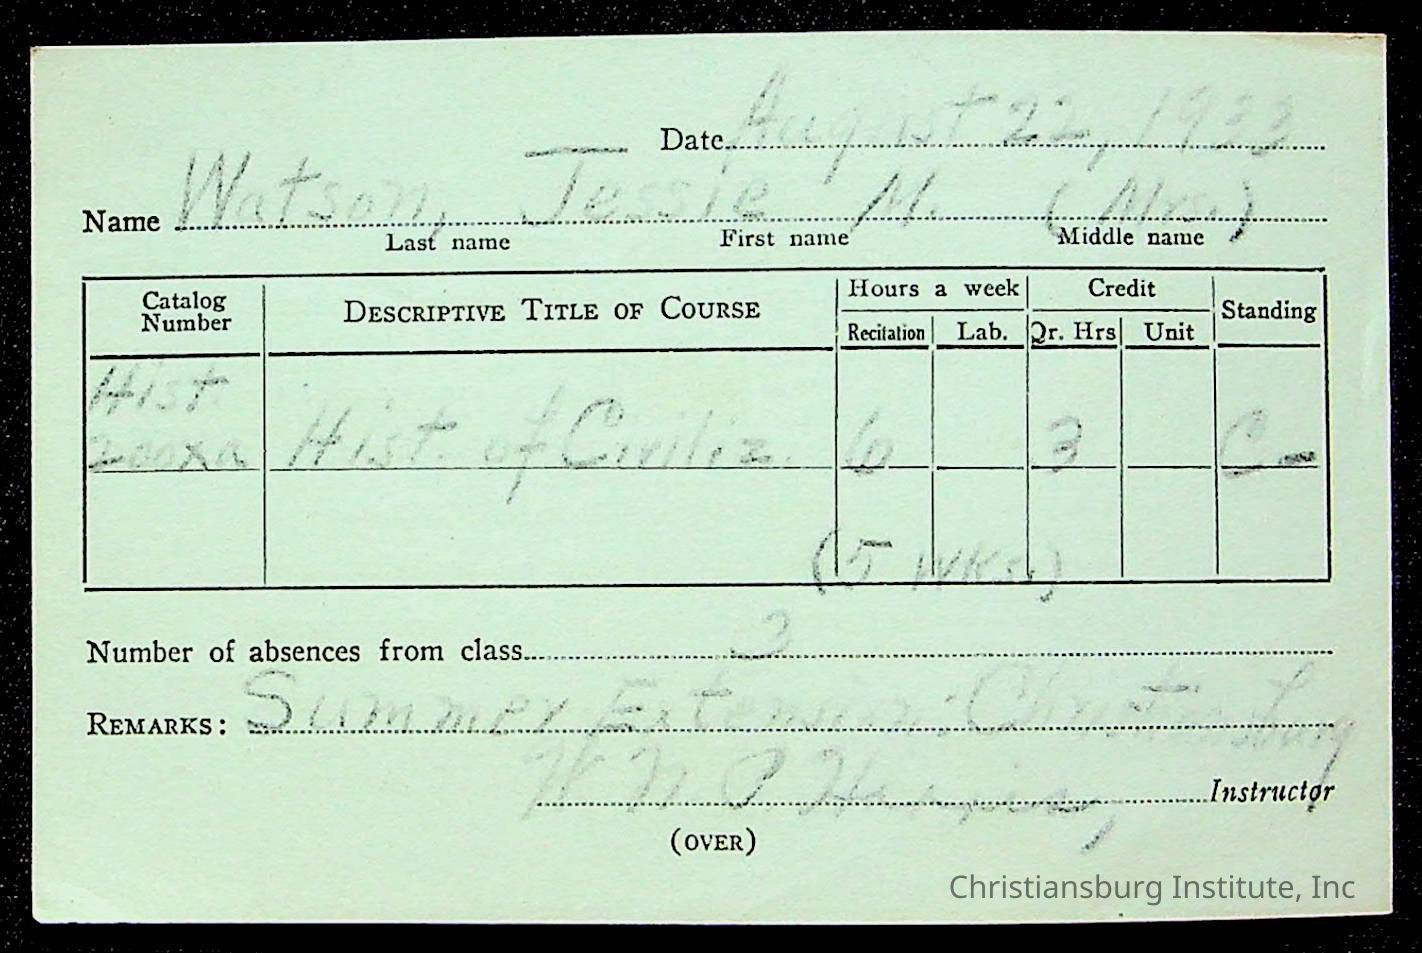 Date August 22, 1933
Name Watson, Jessie M. (Mrs.)
Last name First name Middle name
Catalog Number DESCRIPTIVE TITLE OF COURSE Hours a week Credit Standing
Recitation Lab. Qr. Hrs Unit
Hist
200xa Hist. of Civiliz. 6 3 C-
(5 wks.)
Number of absences from class 3
REMARKS: Summer Extension: Christiansburg
Instructor
(OVER)
Christiansburg Institute, Inc